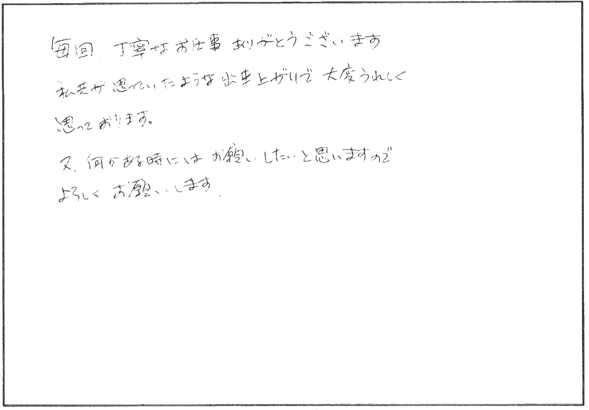 毎回 丁寧なお仕事 ありがとうございます
私共が 思っていたような 出来上がりで 大変うれしく
思っております。
又、何かある時には お願いしたいと思いますので
よろしく お願いします。